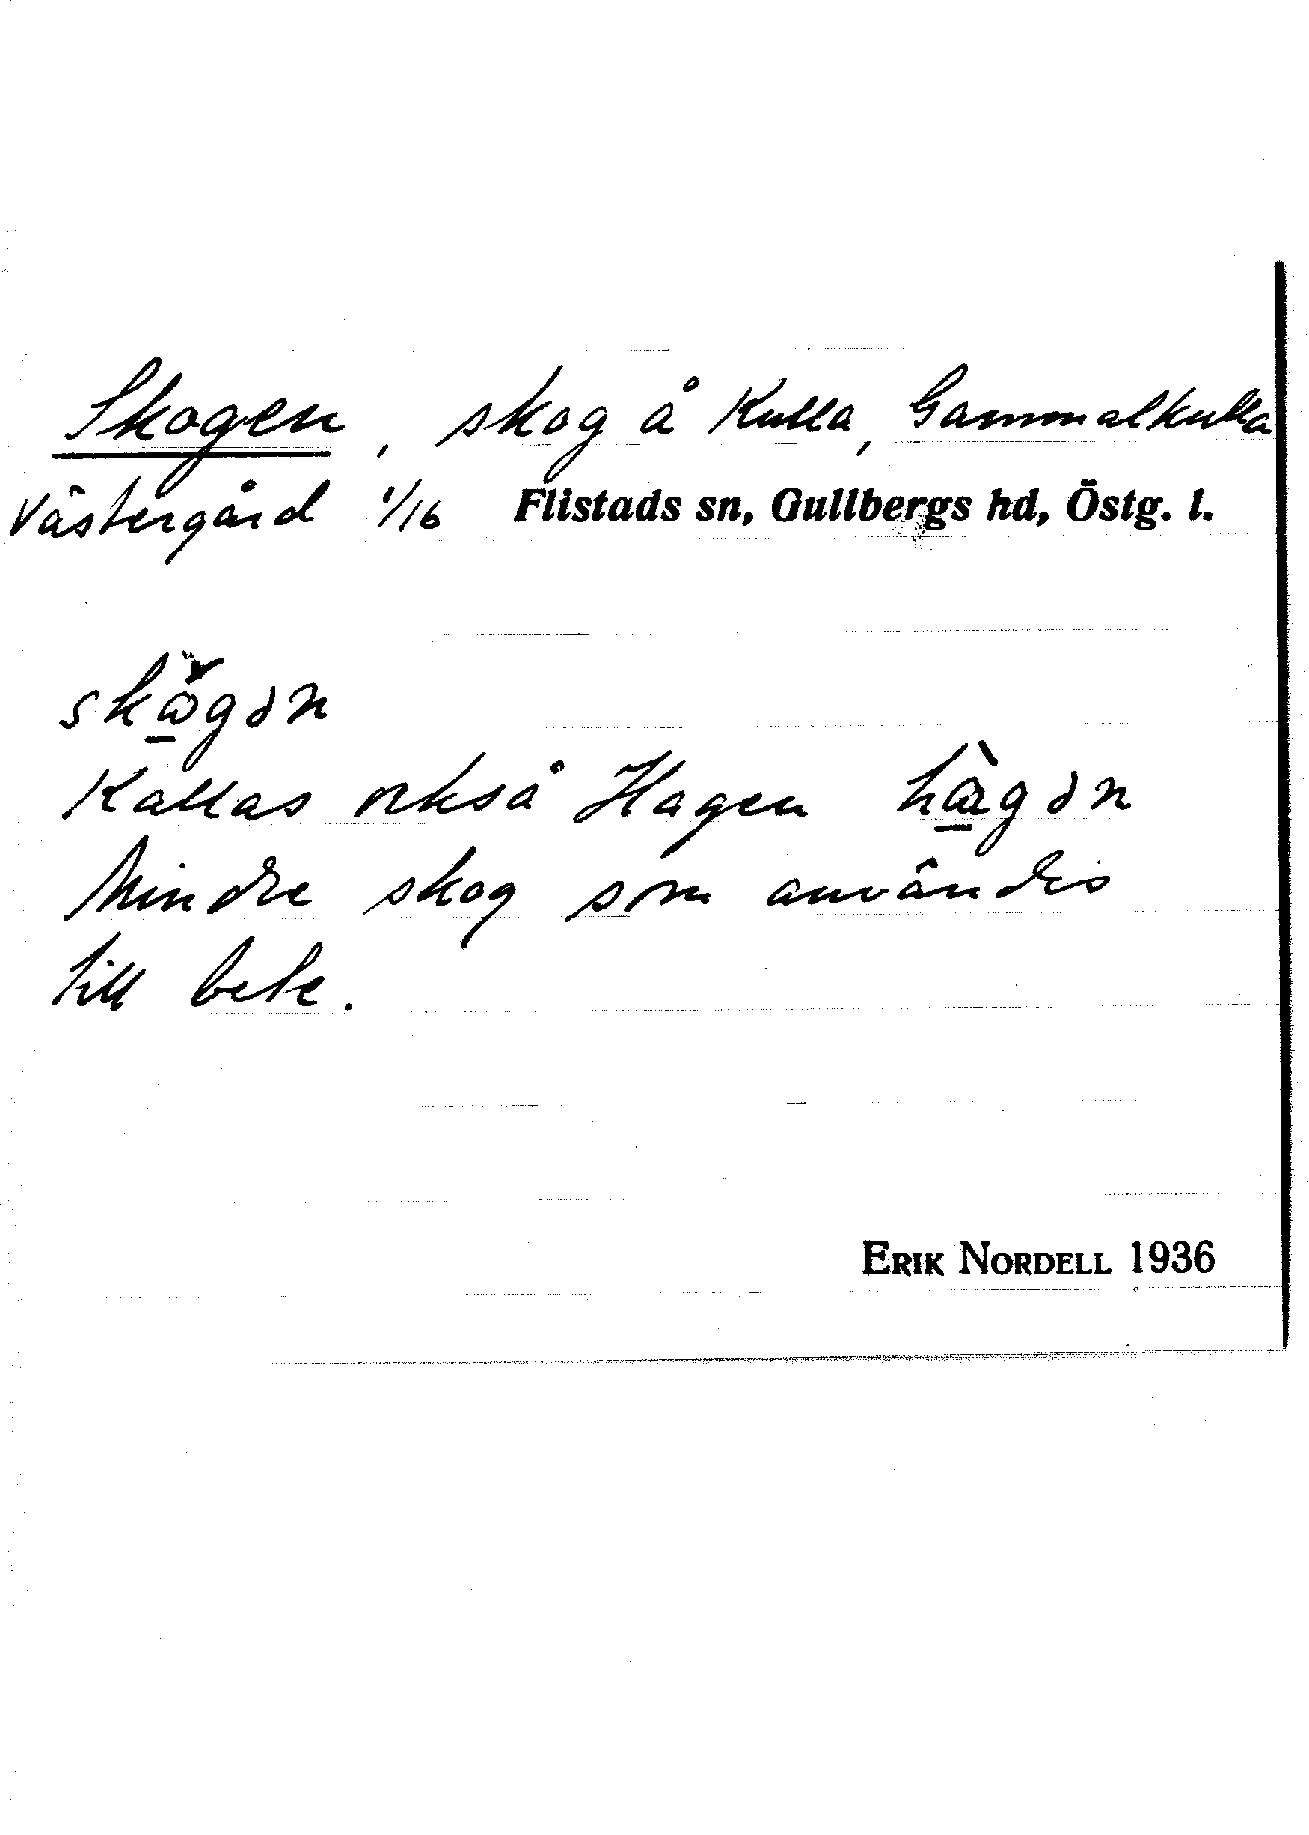 Skogen, skog å Kulla, Gammalkulla
Västergård 1/16 Flistads sn, Gullbergs hd, Östg. l.
skog̀ən
Kallas också Hagen hàgən
Mindre skog som användes
till bete.
ERIK NORDELL 1936